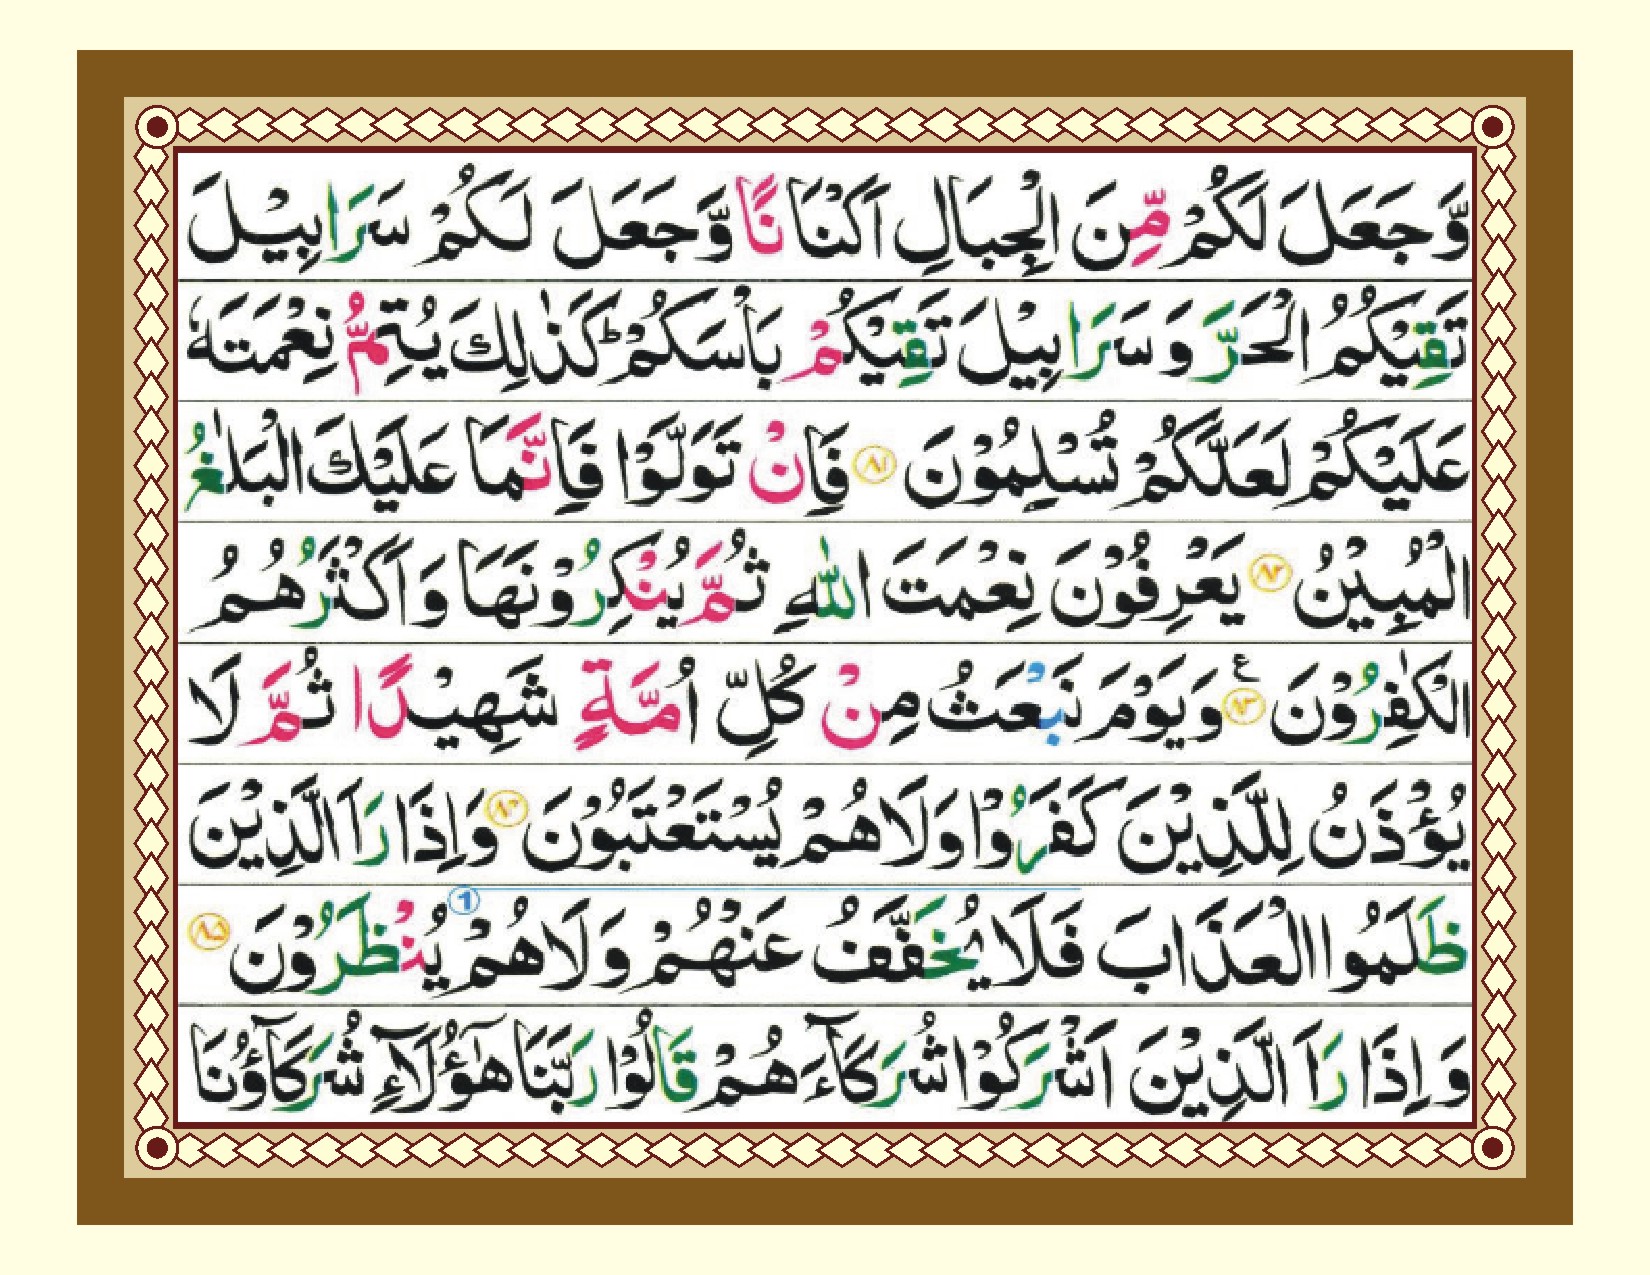 وَّجَعَلَ لَكُمْ مِّنَ الْجِبَالِ اَكْنَانًا وَّجَعَلَ لَكُمْ سَرَابِيْلَ
تَقِيْكُمُ الْحَرَّ وَسَرَابِيْلَ تَقِيْكُمْ بَاْسَكُمْ ؕ كَذٰلِكَ يُتِمُّ نِعْمَتَهٗ
عَلَيْكُمْ لَعَلَّكُمْ تُسْلِمُوْنَ ﴿۸۱﴾ فَاِنْ تَوَلَّوْا فَاِنَّمَا عَلَيْكَ الْبَلٰغُ
الْمُبِيْنُ ﴿۸۲﴾ يَعْرِفُوْنَ نِعْمَتَ اللّٰهِ ثُمَّ يُنْكِرُوْنَهَا وَاَكْثَرُهُمُ
الْكٰفِرُوْنَ ﴿۸۳﴾ ع وَيَوْمَ نَبْعَثُ مِنْ كُلِّ اُمَّةٍ شَهِيْدًا ثُمَّ لَا
يُؤْذَنُ لِلَّذِيْنَ كَفَرُوْا وَلَا هُمْ يُسْتَعْتَبُوْنَ ﴿۸۴﴾ وَاِذَا رَاَ الَّذِيْنَ
ظَلَمُوا الْعَذَابَ فَلَا يُخَفَّفُ عَنْهُمْ وَلَا هُمْ يُنْظَرُوْنَ ﴿۸۵﴾ 1
وَاِذَا رَاَ الَّذِيْنَ اَشْرَكُوْا شُرَكَآءَهُمْ قَالُوْا رَبَّنَا هٰٓؤُلَآءِ شُرَكَآؤُنَا